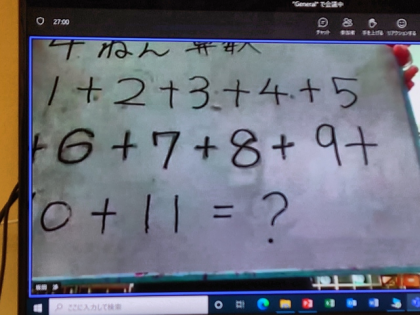 "General"で会議中
27:00
チャット 参加者 手を上げる リアクションする
4 ねん 算数
1+2+3+4+5
+6+7+8+9+
0+11=?
ここに入力して検索